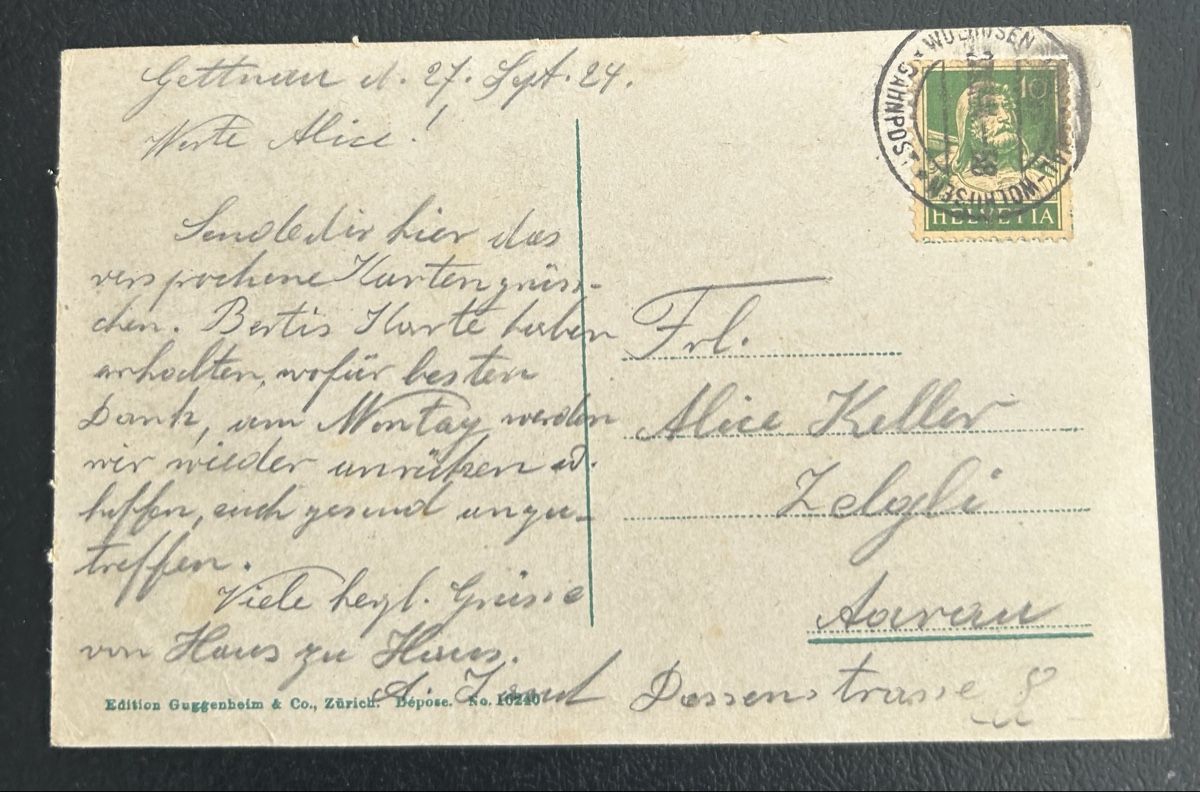 Gettnau d. 27. Sept. 24.
Werte Alice!
Sende dir hier das
versprochene Kartengrüss-
chen. Bertis Karte haben
erhalten, wofür besten
Dank, am Montag werden
wir wieder anrücken u.
hoffen, euch gesund anzu-
treffen.
Viele herzl. Grüsse
von Haus zu Haus.
A.
Edition Guggenheim & Co., Zürich. Dépose. No. 10240
WOLHUSEN
BAHNPOS
WOLHUSEN
10
HELVETIA
Frl.
Alice Keller
Zelgli
Aarau
Dossenstrasse 8